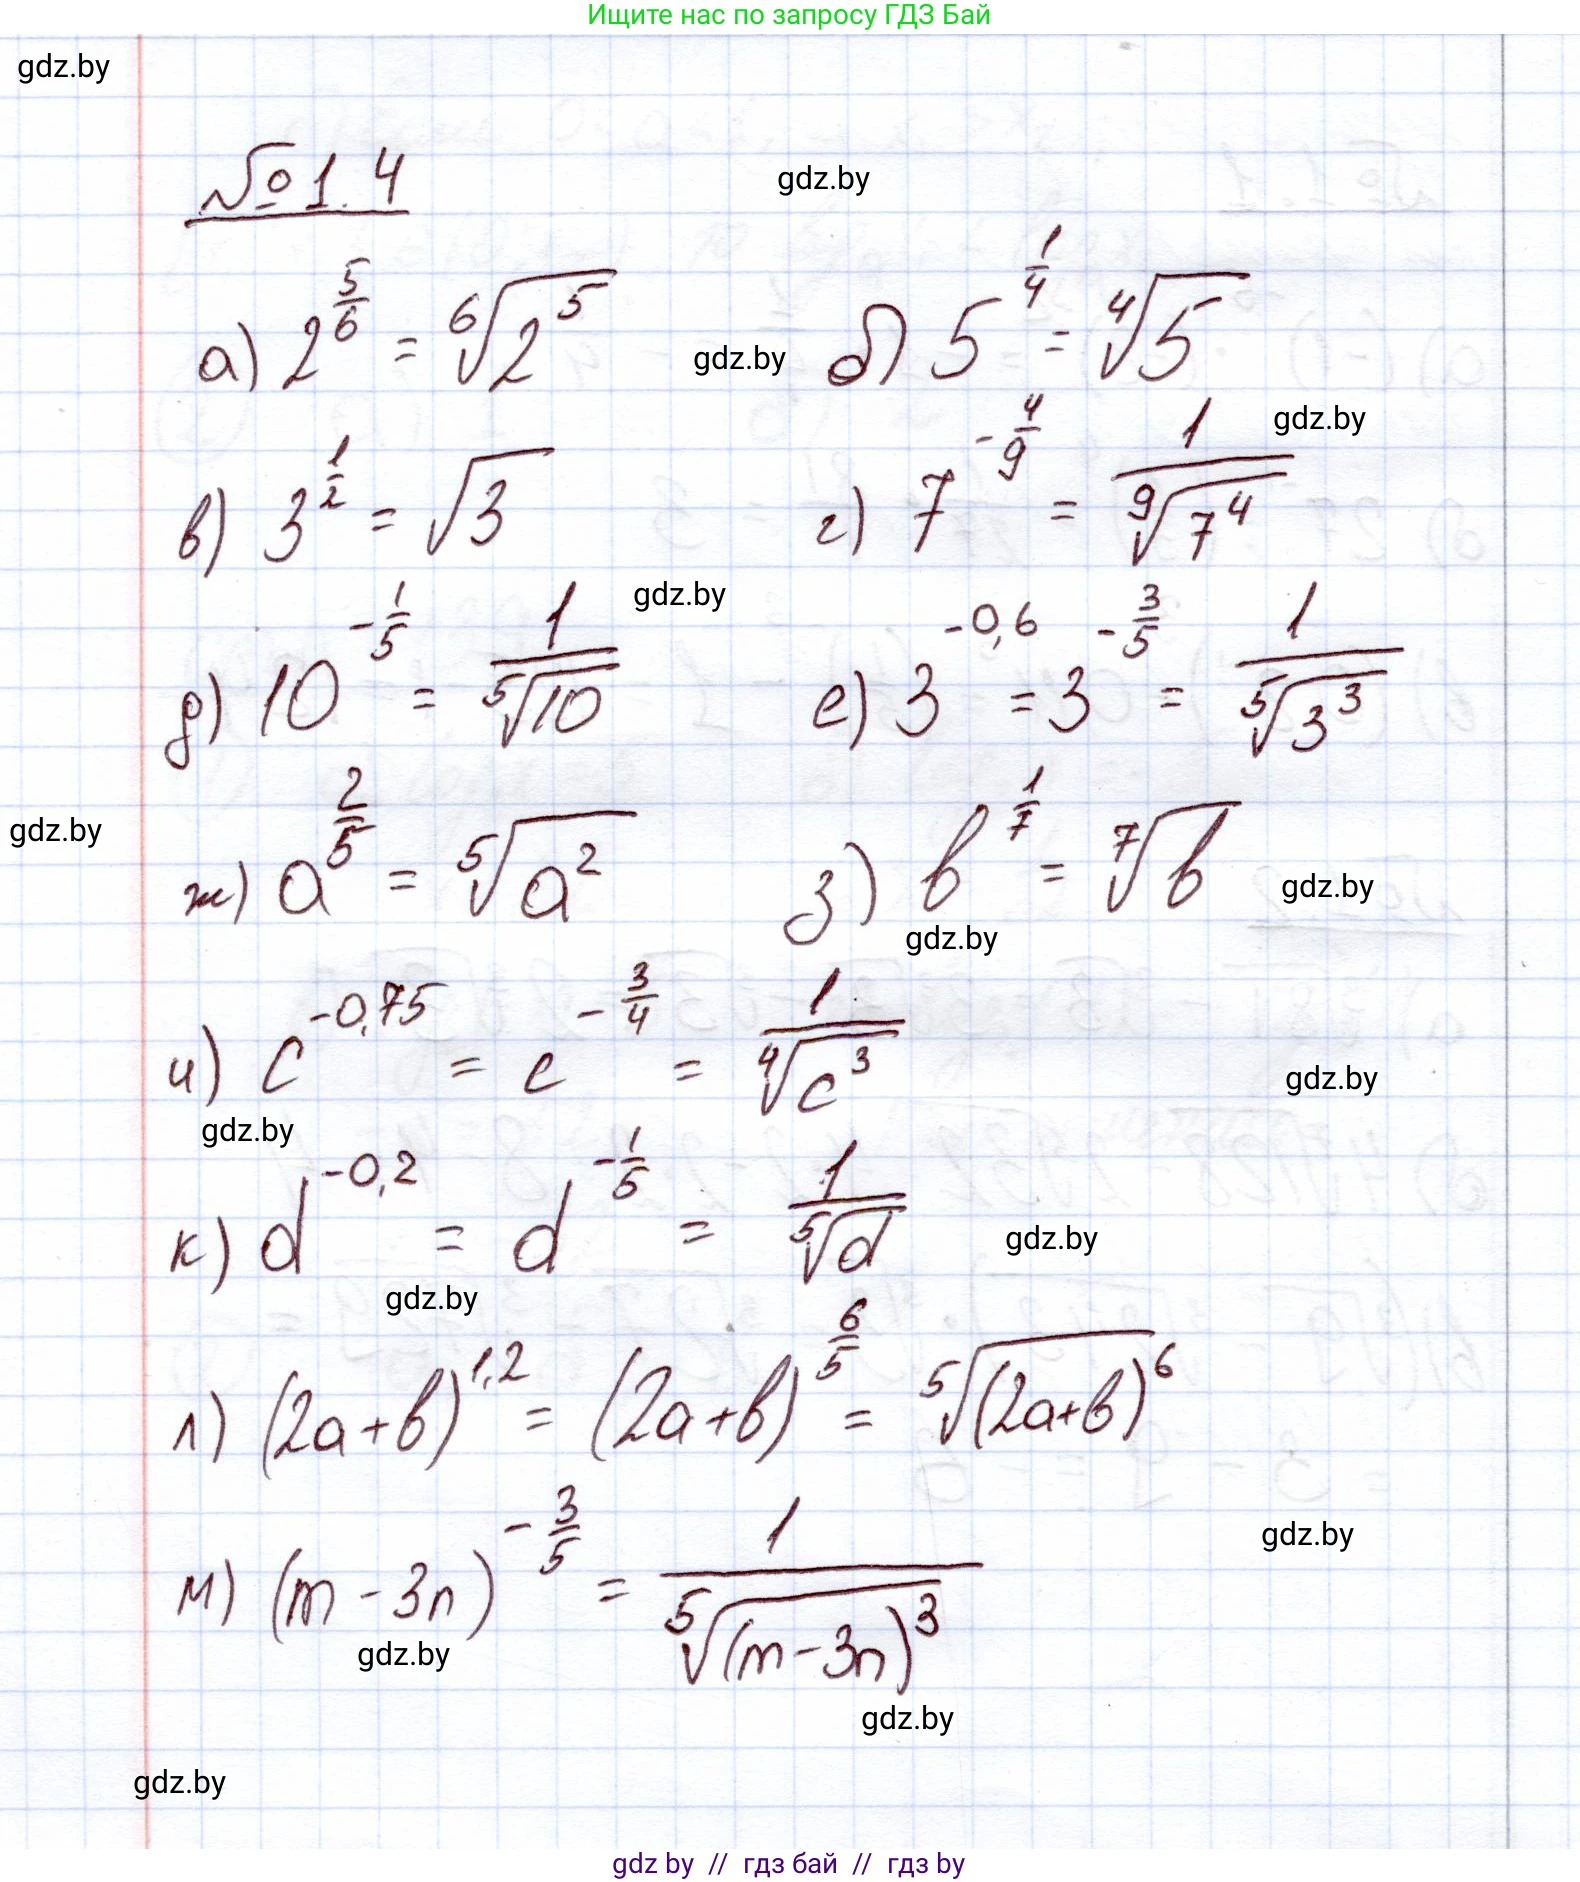 Ищите нас по запросу ГДЗ Бай
gdz.by
№ 1.4
gdz.by
а) 2^(5/6) = ⁶√(2⁵) gdz.by б) 5^(1/4) = ⁴√5
gdz.by
в) 3^(1/2) = √3 г) 7^(-4/9) = 1/⁹√(7⁴)
gdz.by
д) 10^(-1/5) = 1/⁵√10 е) 3^(-0,6) = 3^(-3/5) = 1/⁵√(3³)
gdz.by
ж) a^(2/5) = ⁵√(a²) з) b^(1/7) = ⁷√b gdz.by
gdz.by
и) c^(-0,75) = c^(-3/4) = 1/⁴√(c³) gdz.by
gdz.by
к) d^(-0,2) = d^(-1/5) = 1/⁵√d gdz.by
gdz.by
л) (2a+b)^(1,2) = (2a+b)^(6/5) = ⁵√((2a+b)⁶)
gdz.by
м) (m-3n)^(-3/5) = 1/⁵√((m-3n)³)
gdz.by
gdz.by
gdz.by
gdz by // гдз бай // гдз by